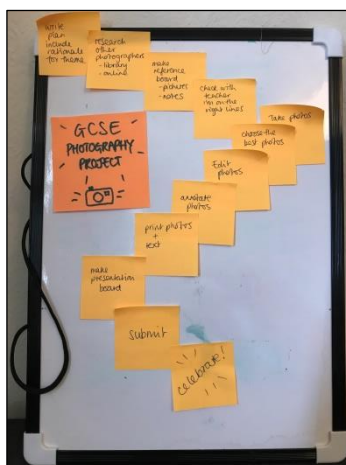 write
plan
include
rationale
for theme
research
other
photographers
- library
- online
make
reference
board
- pictures
- notes
check with
teacher
I'm on the
right lines
Take photos
choose the
best photos
Edit
photos
annotate
photos
print photos
+
text
make
presentation
board
submit
celebrate!
GCSE
PHOTOGRAPHY
PROJECT